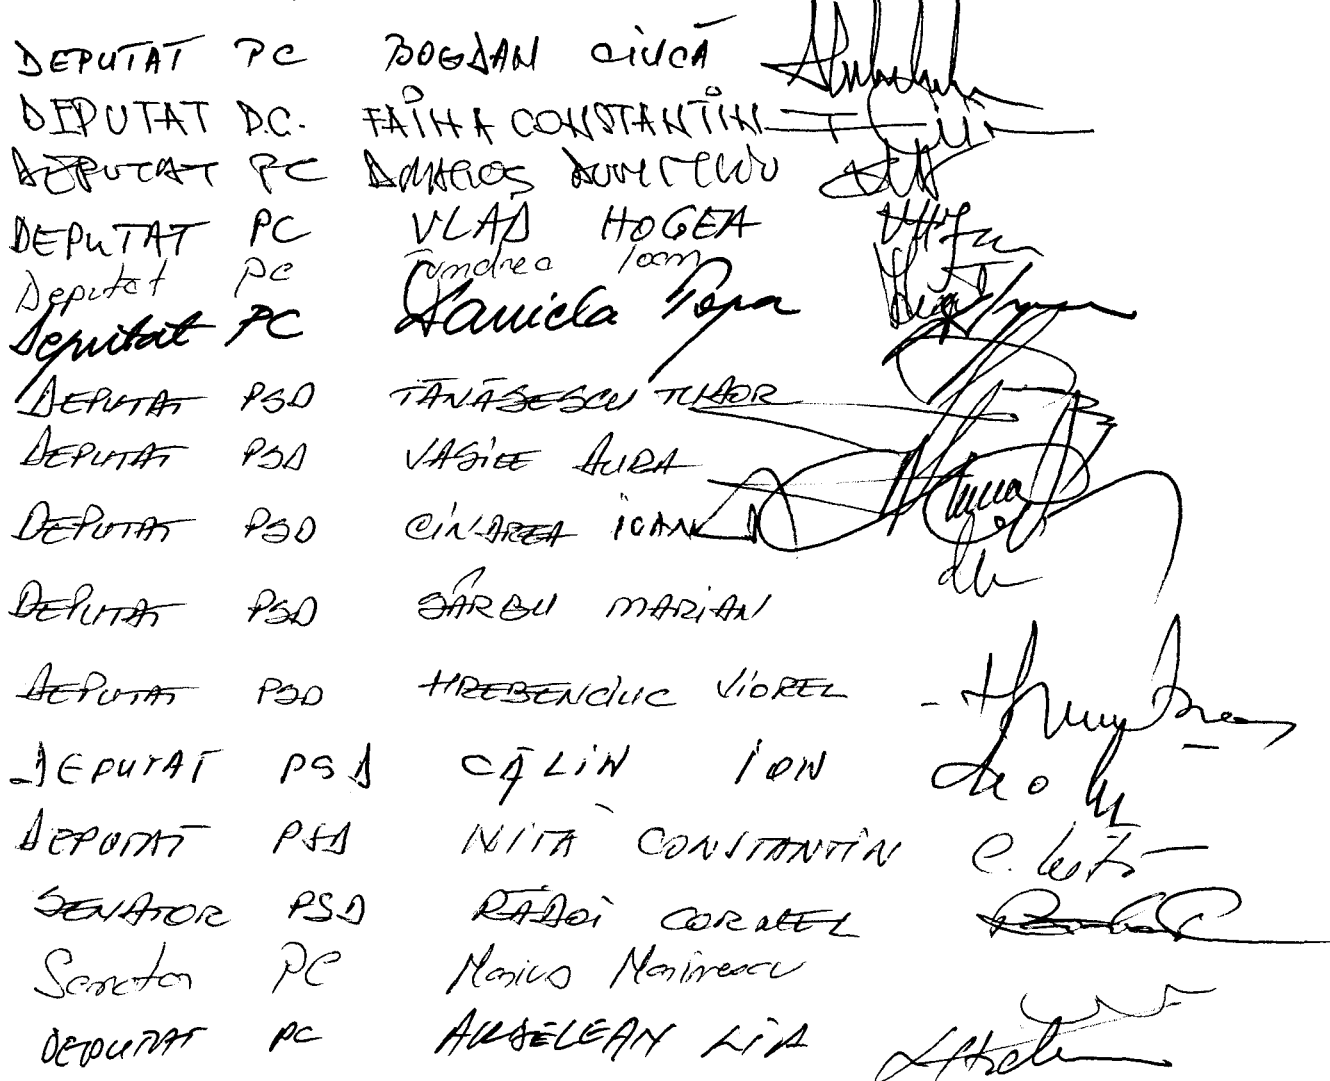 DEPUTAT PC BOGDAN CIUCĂ
DEPUTAT P.C. FAINA CONSTANTIN
DEPUTAT PC DUMITRU
DEPUTAT PC VLAD HOGEA
Deputat PC Ioan
Deputat PC Daniela Popa
DEPUTAT PSD TĂNĂSESCU TUDOR
DEPUTAT PSD VASILE AURA
DEPUTAT PSD CINDREA IOAN
DEPUTAT PSD SÂRBU MARIAN
DEPUTAT PSD HREBENCIUC VIOREL
DEPUTAT PSD CĂLIN ION
DEPUTAT PSD NIȚĂ CONSTANTIN
SENATOR PSD RĂDOI CORNEL
Senator PC Marius Marinescu
DEPUTAT PC ARDELEAN LIA